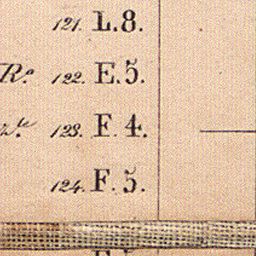 121. L.8.
R.º 122. E.5.
123. F.4.
124. F.5.